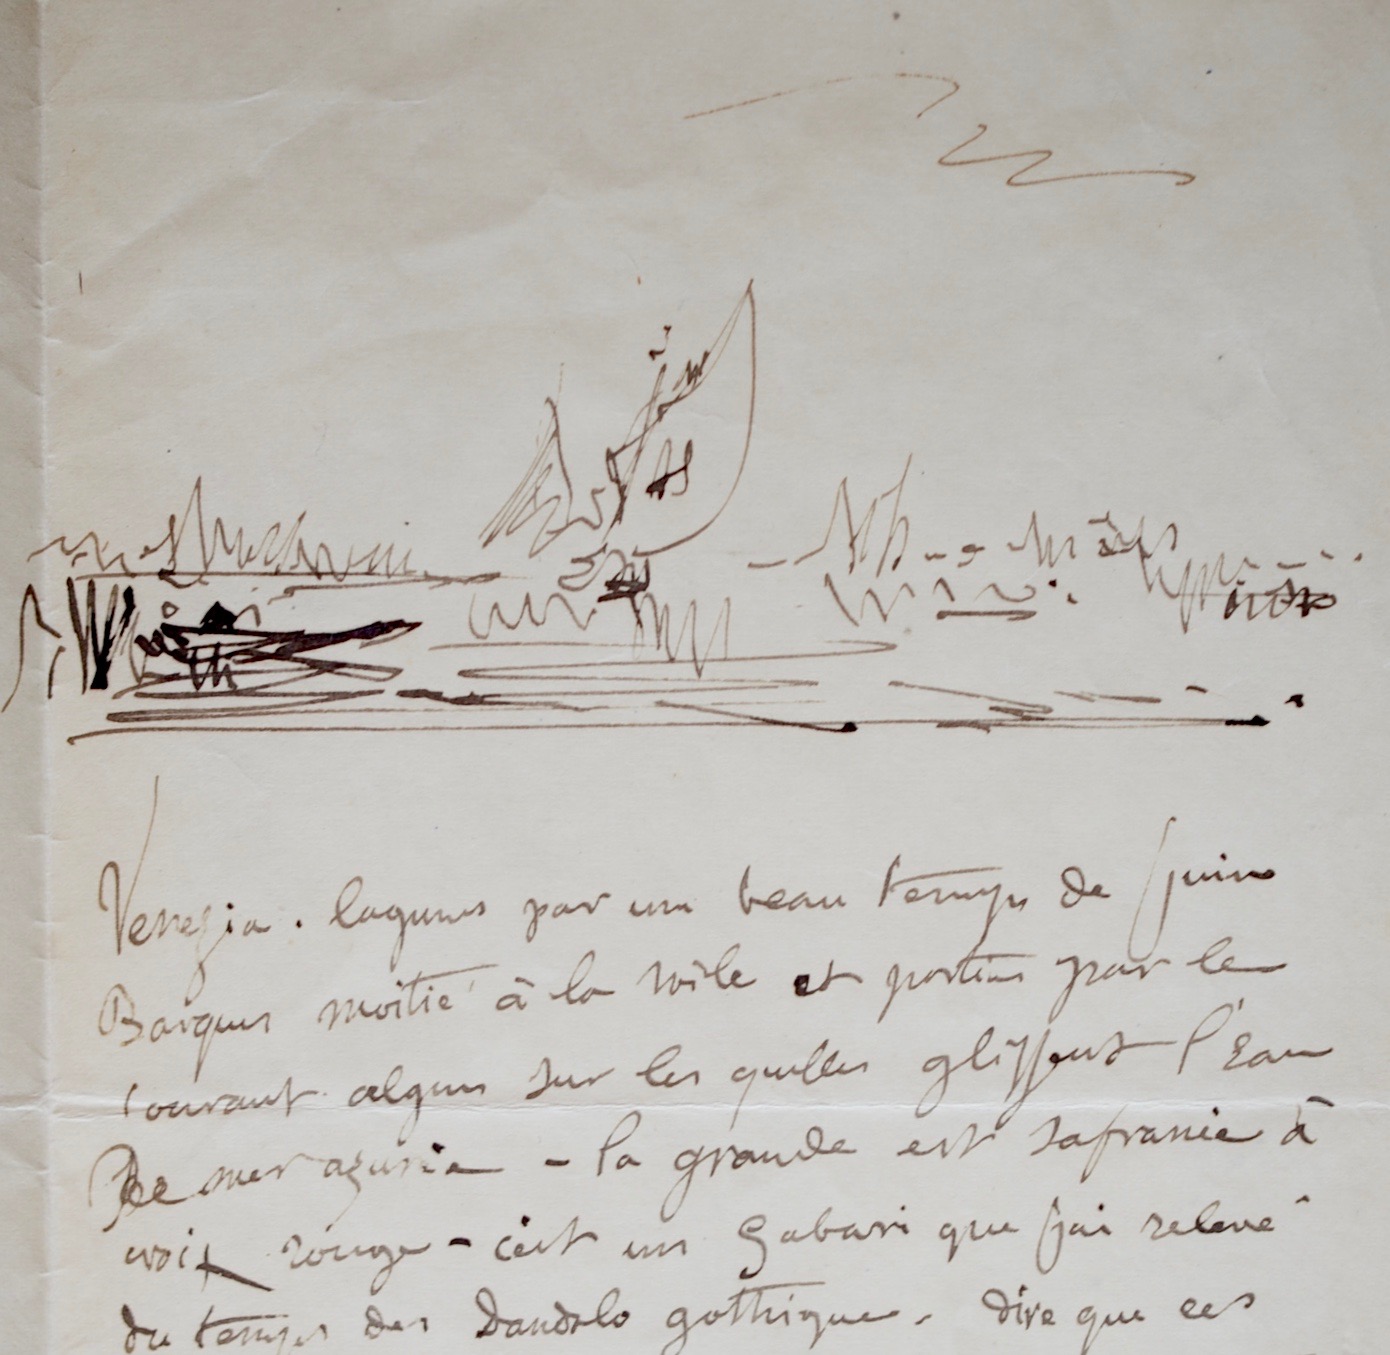 Venezia. lagunes par un beau temps de Juin
Barques moitié à la voile et portées par le
courant. algues sur les quelles glissent l'Eau
De mer azurée – la grande est safranée à
croix rouge – c'est un Gabari que j'ai relevé
du temps des Dandolo gothique. dire que ces